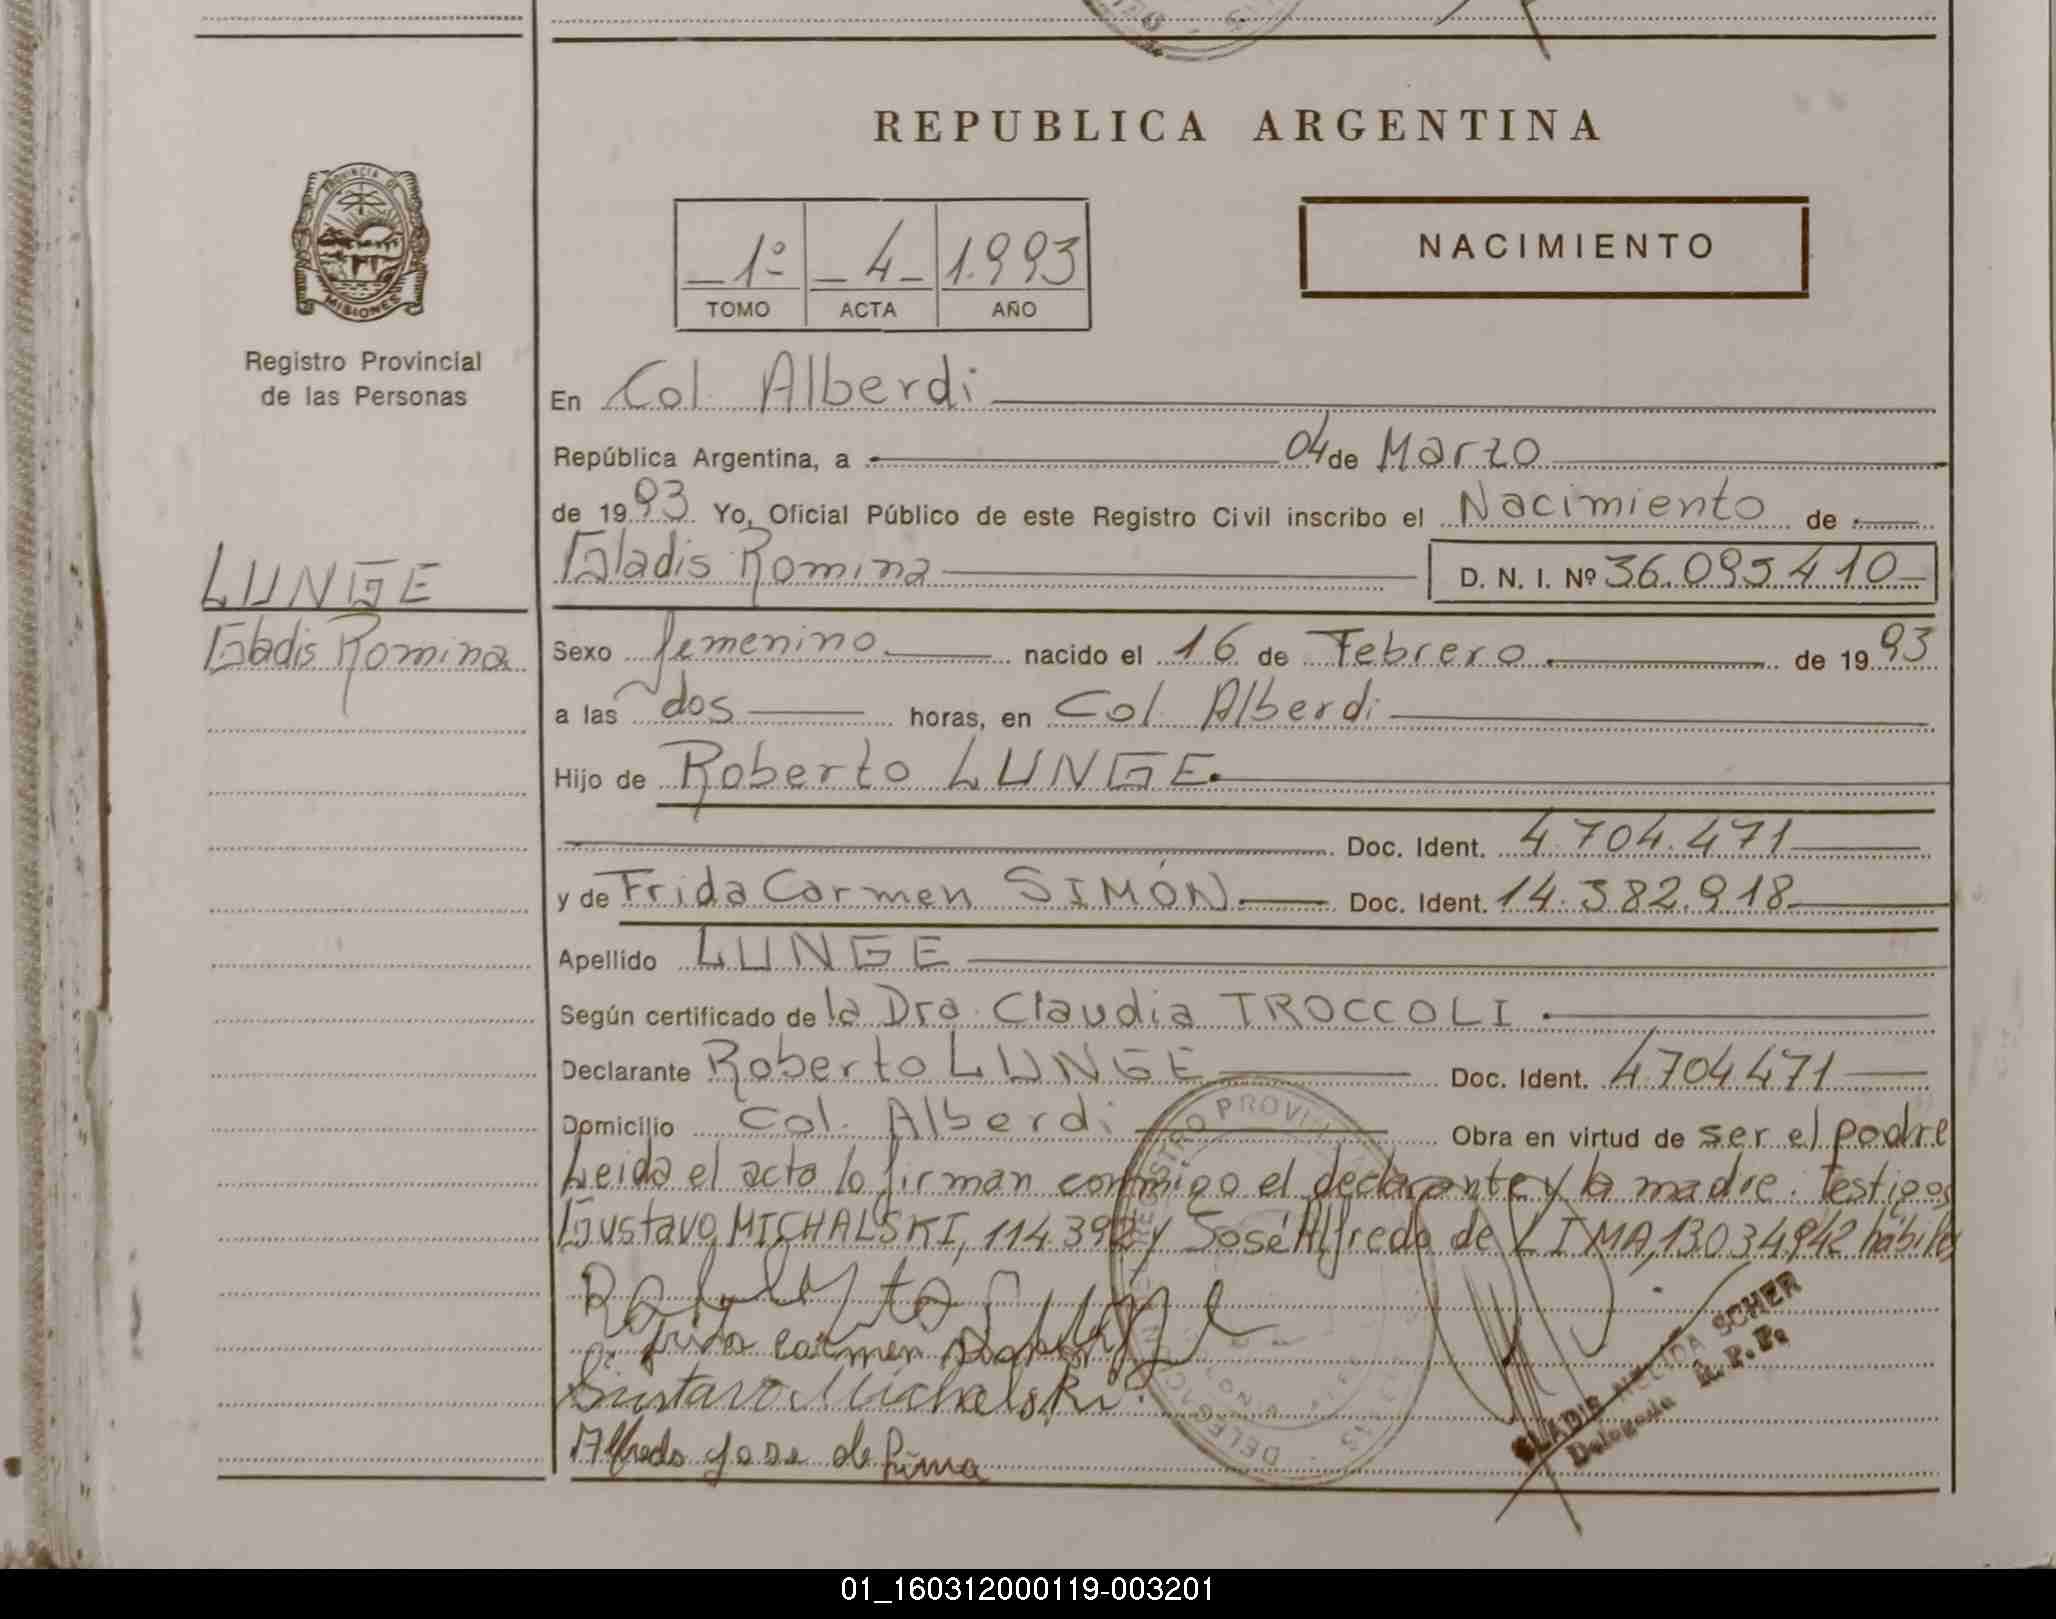 REPUBLICA ARGENTINA
PROVINCIA DE
MISIONES
Registro Provincial
de las Personas
1º 4 1.993
TOMO ACTA AÑO
NACIMIENTO
En Col. Alberdi
República Argentina, a 04 de Marzo
de 1993 Yo, Oficial Público de este Registro Civil inscribo el Nacimiento de
Gladis Romina D. N. I. Nº 36.095410
LUNGE
Gladis Romina
Sexo femenino nacido el 16 de Febrero de 1993
a las dos horas, en Col. Alberdi
Hijo de Roberto LUNGE
Doc. Ident. 4.704.471
y de Frida Carmen SIMÓN Doc. Ident. 14.382.918
Apellido LUNGE
Según certificado de la Dra. Claudia TROCCOLI
Declarante Roberto LUNGE Doc. Ident. 4704471
Domicilio Col. Alberdi Obra en virtud de ser el padre
Leida el acta lo firman conmigo el declarante y la madre. Testigos
Gustavo MICHALSKI, 114.392 y José Alfredo de LIMA, 13034942 hábiles
Frida Carmen
Gustavo Michalski
Alfredo Jose de Lima
GLADIS NELIDA SCHER
Delegada R. P. P.
REGISTRO PROVINCIAL
DELEGACION
01_160312000119-003201